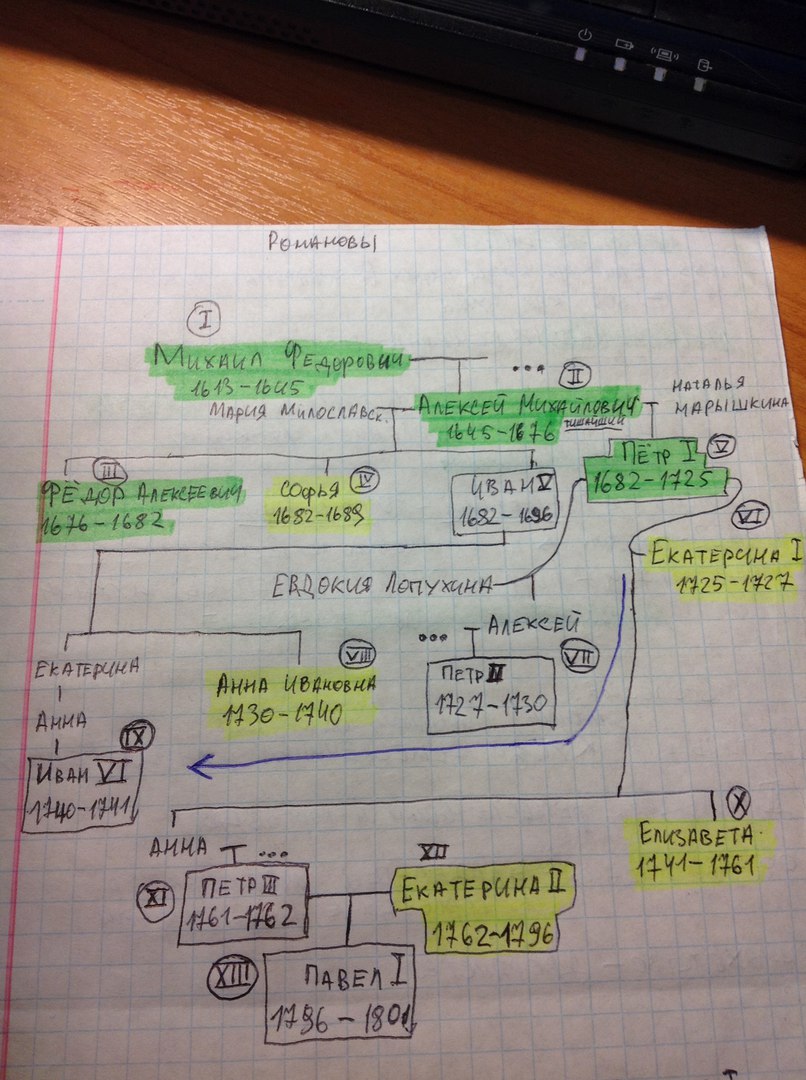 РОМАНОВЫ
I
МИХАИЛ ФЕДОРОВИЧ
1613-1645
... II
МАРИЯ МИЛОСЛАВСК.
АЛЕКСЕЙ МИХАЙЛОВИЧ
1645-1676 ТИШАЙШИЙ
НАТАЛЬЯ
МАРЫШКИНА
III
ФЁДОР АЛЕКСЕЕВИЧ
1676-1682
СОФЬЯ IV
1682-1689
ИВАН V
1682-1696
ПЁТР I V
1682-1725
VI
ЕКАТЕРИНА I
1725-1727
ЕВДОКИЯ ЛОПУХИНА
... АЛЕКСЕЙ
ЕКАТЕРИНА
АННА
IX
ИВАН VI
1740-1741
VIII
АННА ИВАНОВНА
1730-1740
VII
ПЕТР II
1727-1730
X
ЕЛИЗАВЕТА
1741-1761
АННА ...
XI
ПЕТР III
1761-1762
XII
ЕКАТЕРИНА II
1762-1796
XIII
ПАВЕЛ I
1796-1801